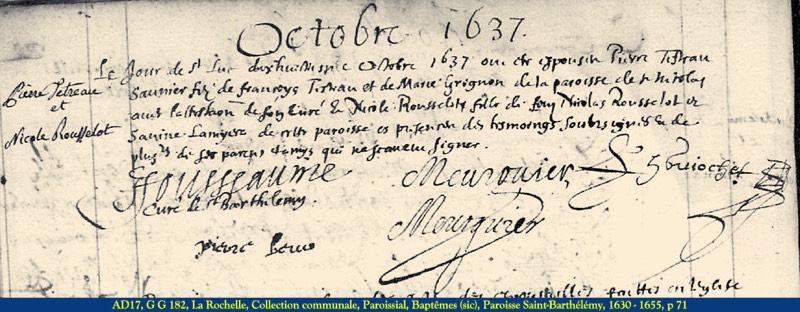 Octobre 1637.
Pierre Tetreau
et
Nicole Rousselot
Le Jour de St Luc dixhuitiesme Octobre 1637 ont este espousez Pierre Tetreau
Saunier filz de francoys Tetreau et de Marie Grignon de la paroisse de St Nicolas
avec l'attestaon de son Curé & Nicole Rousselots fille de feu Nicolas Rousselot et
de ceste paroisse es presences des tesmoings soubsignes & de
plusrs de ses parens & amys qui ne scavent signer.
JJousseaume
Curé de St Barthélemy.
Meusnier
Guiochet
pierre
Meusnier
faittes en leglise
AD17, G G 182, La Rochelle, Collection communale, Paroissial, Baptêmes (sic), Paroisse Saint-Barthélémy, 1630 - 1655, p 71